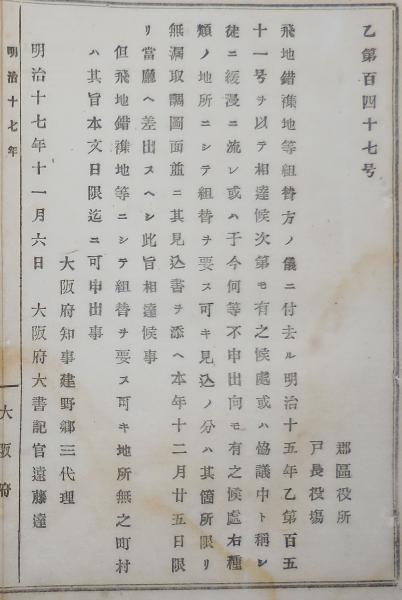 乙第百四十七号
郡區役所
戸長役塲
飛地錯襍地等組替方ノ儀ニ付去ル明治十五年乙第百五
十一号ヲ以テ相達候次第モ有之候處或ハ恊議中ト稱シ
徒ニ緩漫ニ流レ或ハ于今何等不申出向モ有之候處右種
類ノ地所ニシテ組替ヲ要ス可キ見込ノ分ハ其箇所限リ
無漏取調圖面並ニ其見込書ヲ添ヘ本年十二月廿五日限
リ當廳ヘ差出スヘシ此旨相達候事
但飛地錯襍地等ニシテ組替ヲ要ス可キ地所無之町村
ハ其旨本文日限迄ニ可申出事
大阪府知事建野郷三代理
明治十七年十一月六日　大阪府大書記官遠藤達
明治十七年
大阪府